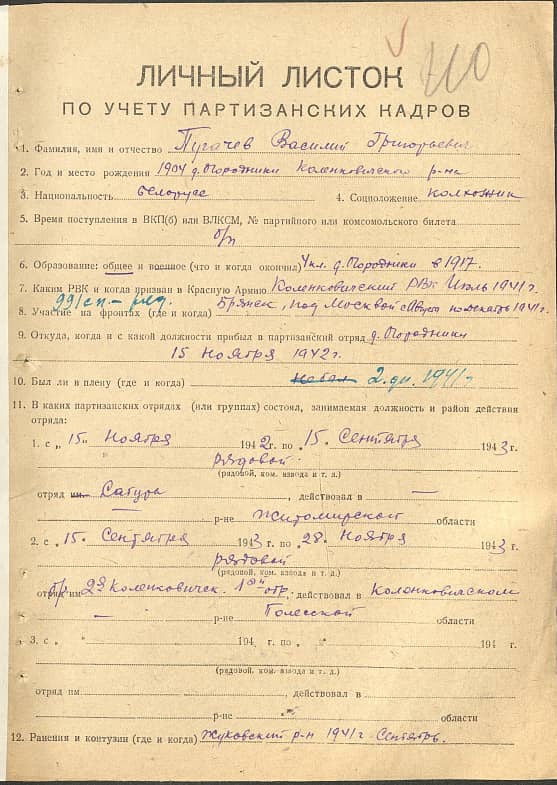 710
ЛИЧНЫЙ ЛИСТОК
ПО УЧЕТУ ПАРТИЗАНСКИХ КАДРОВ
1. Фамилия, имя и отчество Пугачев Василий Григорьевич
2. Год и место рождения 1904 д. Огородники Коленковичского р-на
3. Национальность белорусс 4. Соцположение колхожник
5. Время поступления в ВКП(б) или ВЛКСМ, № партийного или комсомольского билета
б/п
6. Образование: общее и военное (что и когда окончил) 4 кл. д. Огородники в 1917.
7. Каким РВК и когда призван в Красную Армию Коленковичский РВК Июль 1941 г.
991 сп – ряд.
8. Участие на фронтах (где и когда) Брянск, под Москвой с Август по декабрь 1941 г.
9. Откуда, когда и с какой должности прибыл в партизанский отряд д. Огородники
15 Ноября 1942 г.
10. Был ли в плену (где и когда) не был 2 дн. 1941 г
11. В каких партизанских отрядах (или группах) состоял, занимаемая должность и район действия
отряда:
1. с „15„ Ноября 1942 г. по „15. Сентября 1943 г.
рядовой
(рядовой, ком. взвода и т. д.)
отряд им. Сатура, действовал в —
р-не Житомирской области
2. с „15. Сентября 1943 г. по „28. Ноября 1943 г.
рядовой
(рядовой, ком. взвода и т. д.)
отряд им 2й Коленковичск. 1ый отр. действовал в Колонковичском
— р-не Полесской области
3. с „ „ 194 г. по „ „ 194 г.
(рядовой, ком. взвода и т. д.)
отряд им. , действовал в
р-не области
12. Ранения и контузии (где и когда) Жуковский р-н 1941 г Сентябрь.